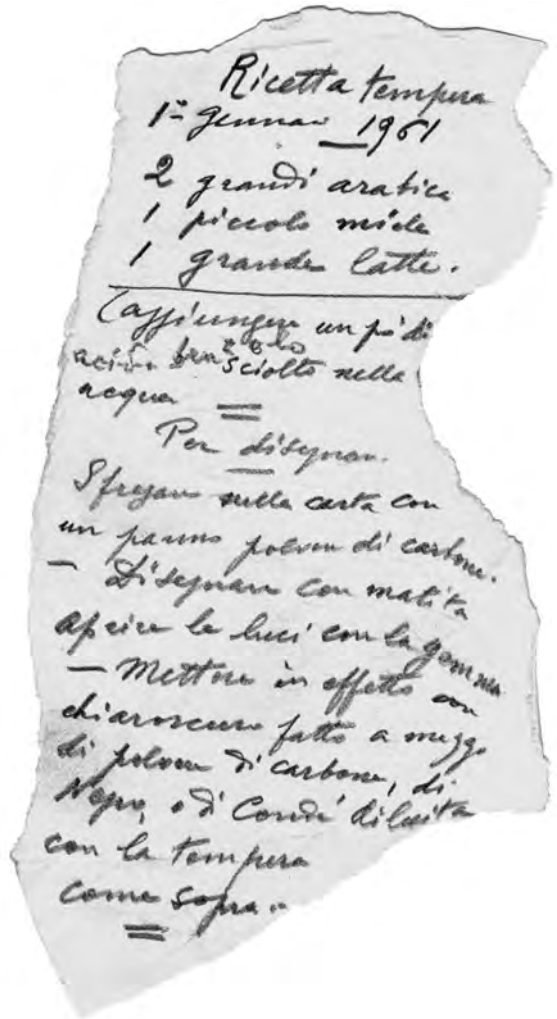 Ricetta tempera
1º Gennaio 1961
2 grandi arabica
1 piccolo miele
1 grande latte.
(aggiungere un pò di
acido sciolto nella
acqua
Per disegnare.
Sfregare sulla carta con
un panno polvere di carbone.
— Disegnare con matita
aprire le luci con la gomma
— Mettere in effetto con
chiaroscuro fatto a mezzo
di polvere di carbone, di
Nero, o di Conté diluita
con la tempera
come sopra..